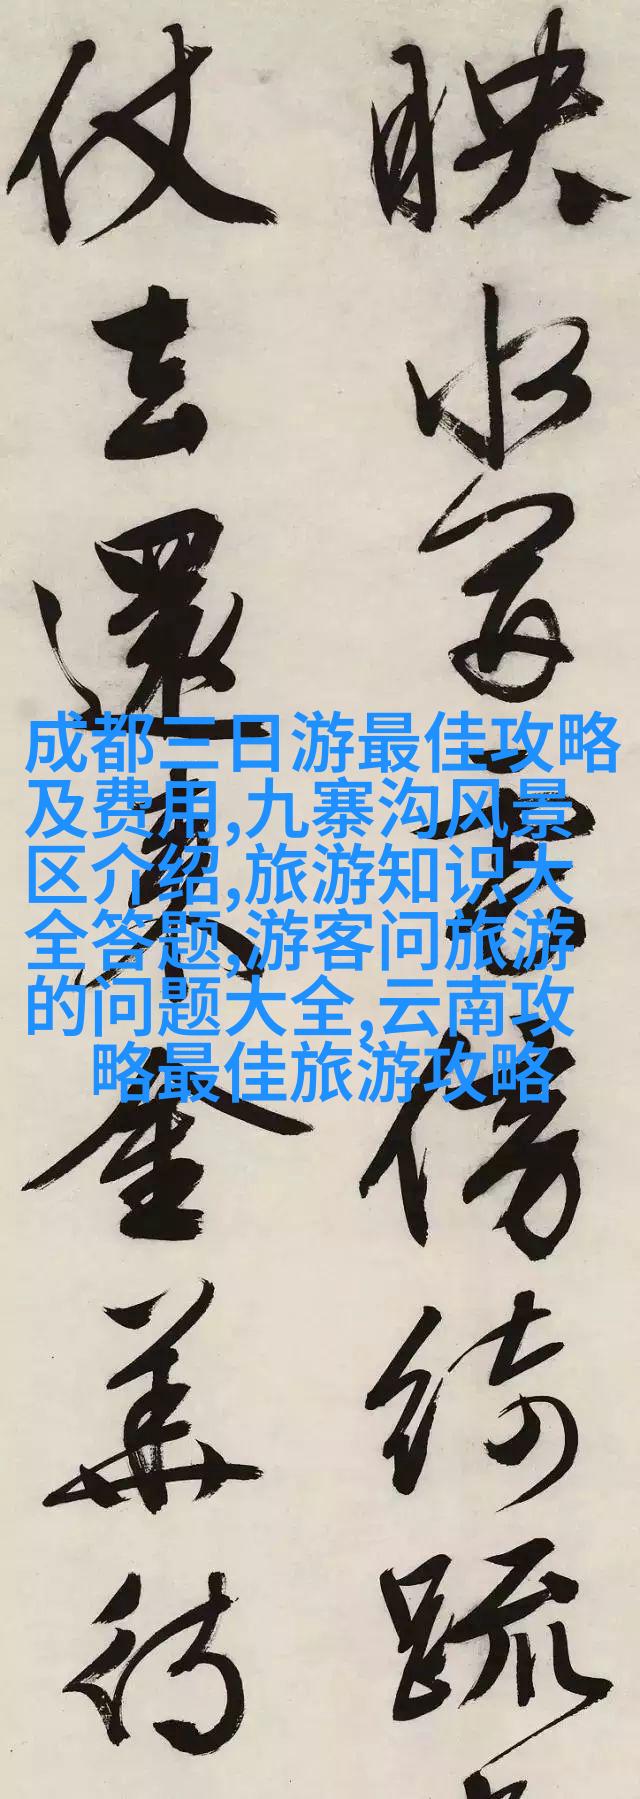 映水寫雲傍綺疏
仗去還來金華待
成都三日游最佳攻略
及费用,九寨沟风景
区介绍,旅游知识大
全答题,游客问旅游
的问题大全,云南攻
略最佳旅游攻略